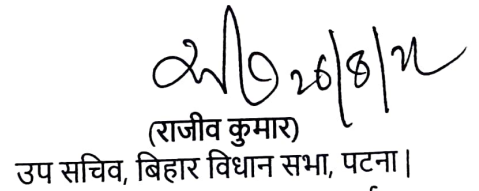 (राजीव कुमार)
उप सचिव, बिहार विधान सभा, पटना |